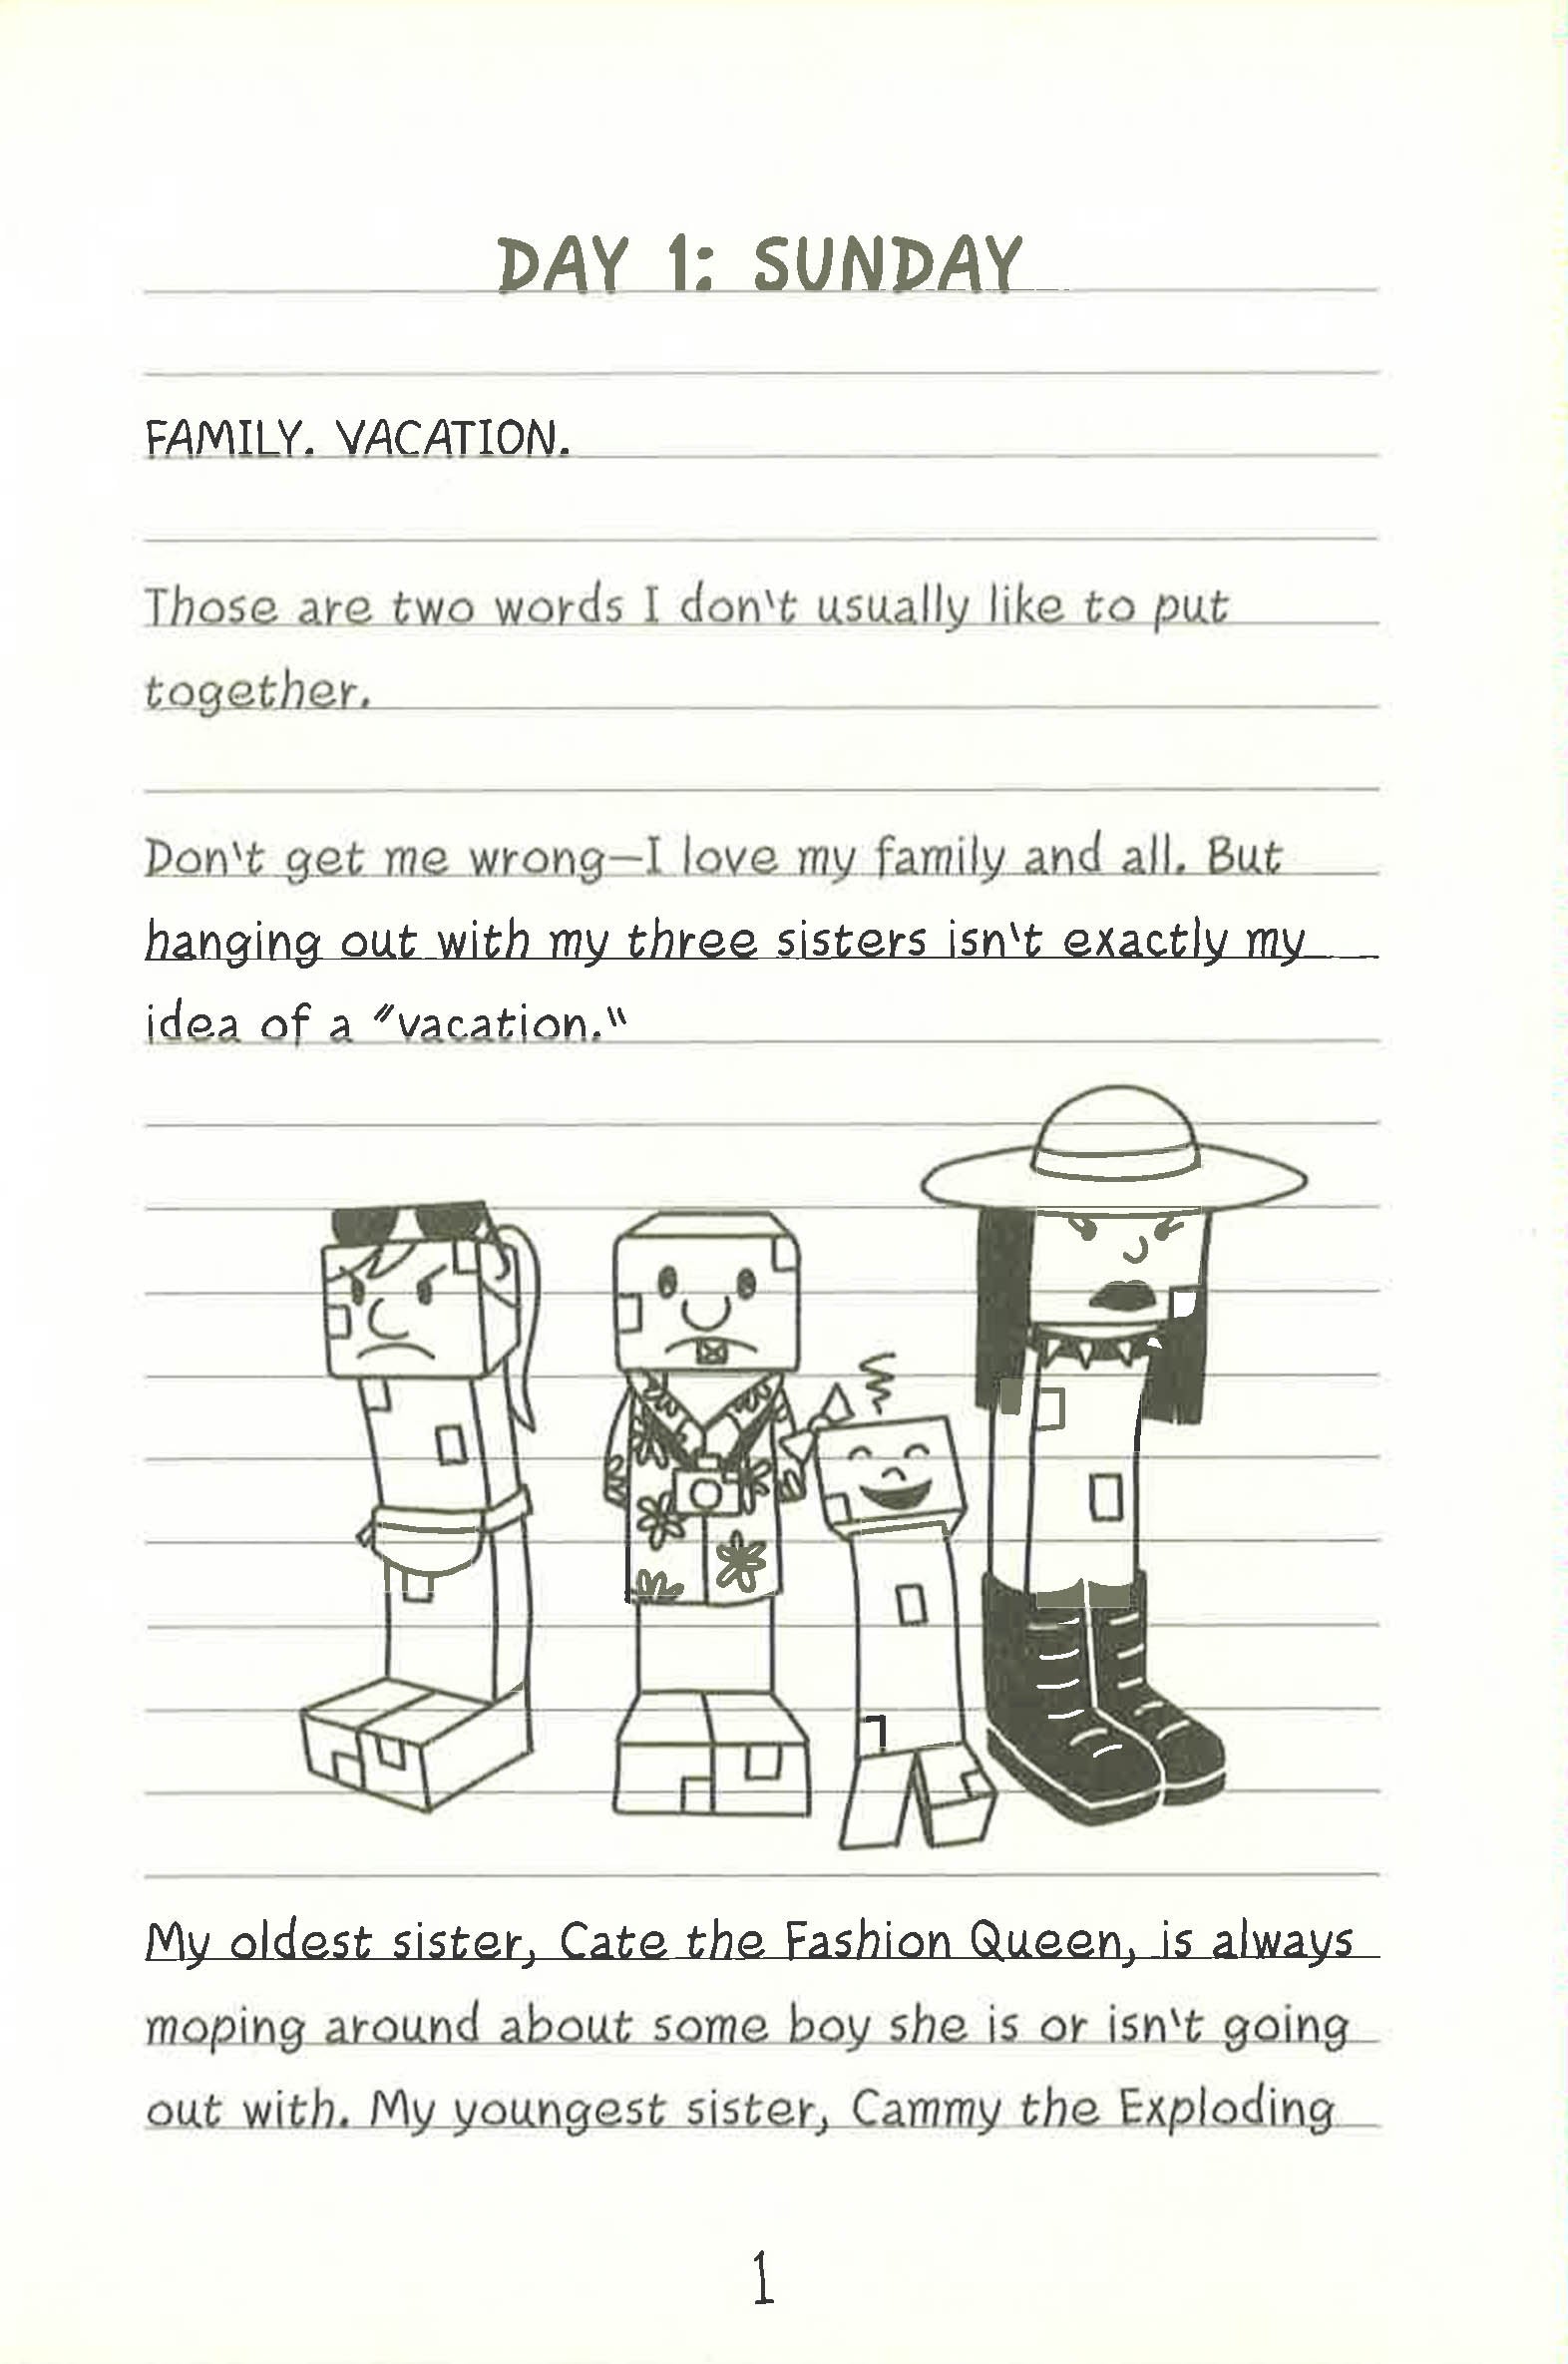 DAY 1: SUNDAY
FAMILY. VACATION.
Those are two words I don't usually like to put
together.
Don't get me wrong—I love my family and all. But
hanging out with my three sisters isn't exactly my
idea of a "vacation."
My oldest sister, Cate the Fashion Queen, is always
moping around about some boy she is or isn't going
out with. My youngest sister, Cammy the Exploding
1